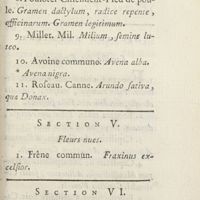 le. Gramen dactylum, radice repente,
officinarum. Gramen legitimum.
9. Millet. Mil. Milium, semine lu-
teo.
10. Avoine commune. Avena alba.
* Avena nigra.
11. Roseau. Canne. Arundo sativa,
quæ Donax.
SECTION V.
Fleurs nues.
1. Frêne commun. Fraxinus ex-
celsior.
SECTION VI.